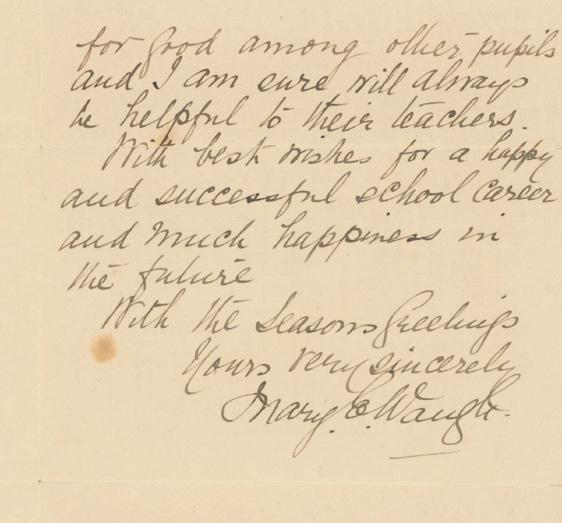 for good among other pupils
and I am sure will always
be helpful to their teachers.
With best wishes for a happy
and successful school career
and much happiness in
the future
With the Seasons Greetings
Yours very sincerely
Mary C. Waugh.